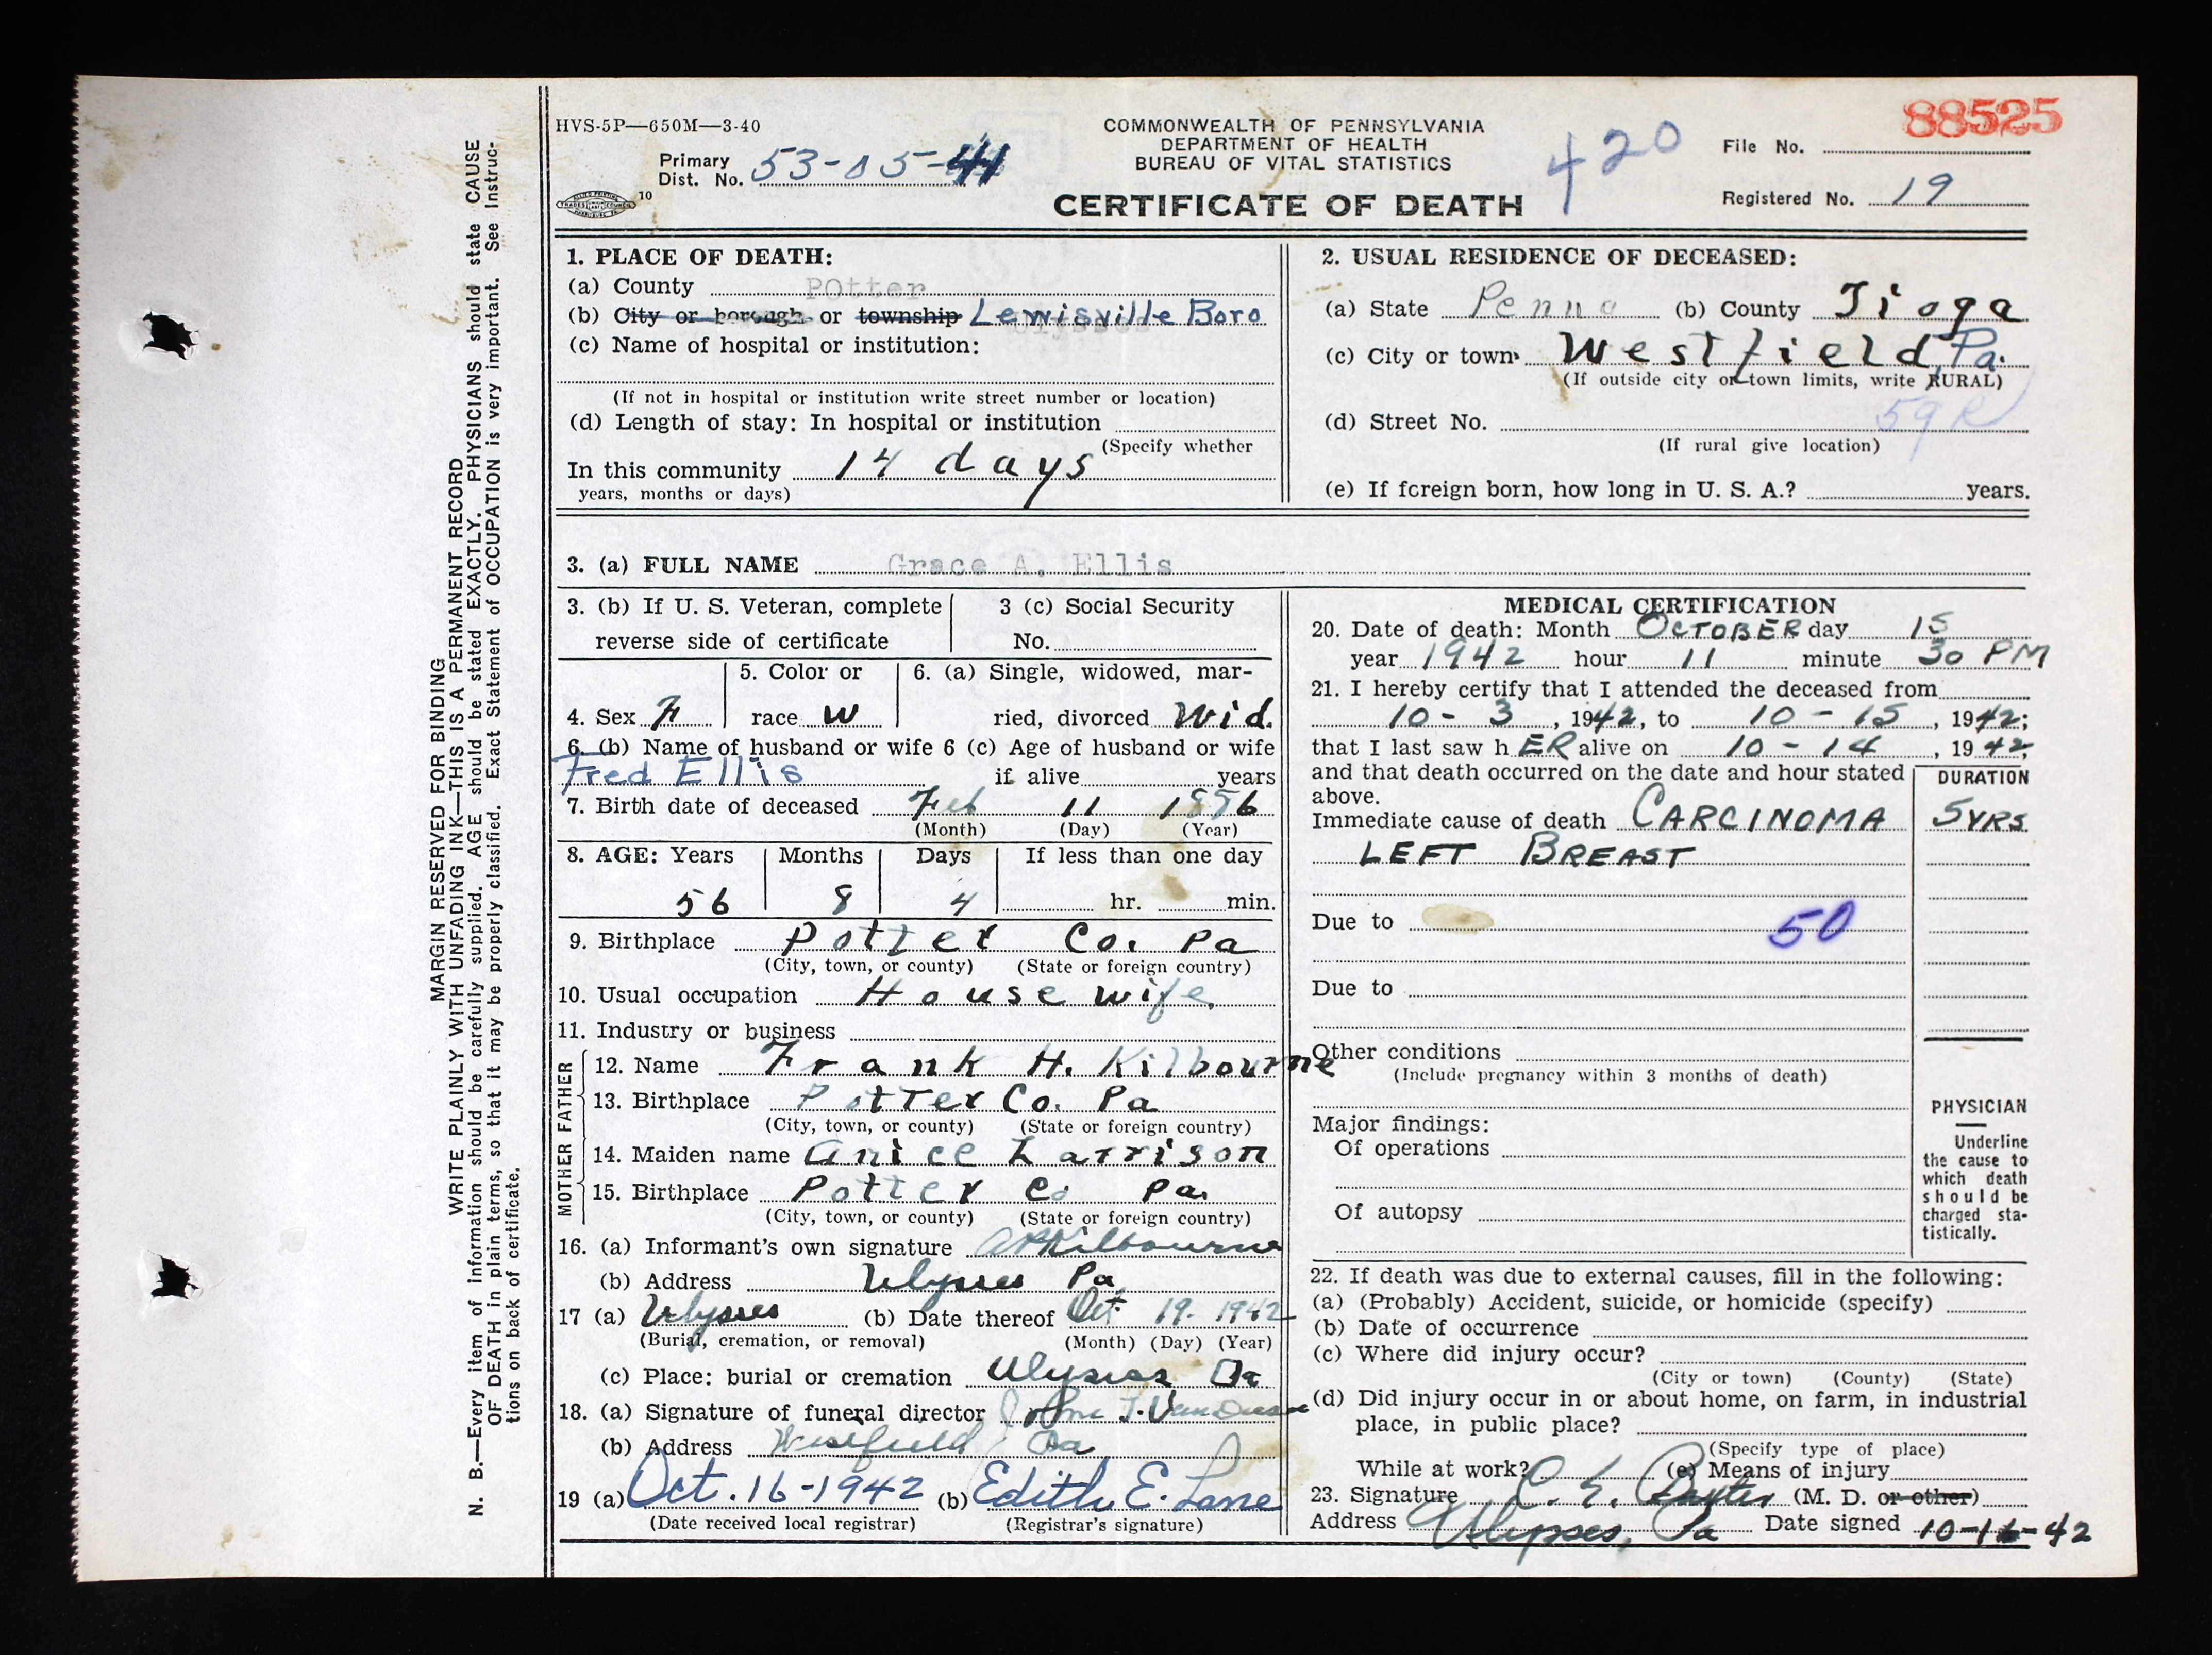 HVS-5P—650M—3-40
COMMONWEALTH OF PENNSYLVANIA
DEPARTMENT OF HEALTH
BUREAU OF VITAL STATISTICS
CERTIFICATE OF DEATH
420
88525
File No.
Primary
Dist. No. 53-05-41
10
Registered No. 19
1. PLACE OF DEATH:
(a) County POtter
(b) City or borough or township Lewisville Boro
(c) Name of hospital or institution:
(If not in hospital or institution write street number or location)
(d) Length of stay: In hospital or institution
(Specify whether
In this community 14 days
years, months or days)
2. USUAL RESIDENCE OF DECEASED:
(a) State Penna (b) County Tioga
(c) City or town Westfield, Pa.
(If outside city or town limits, write RURAL)
59R
(d) Street No.
(If rural give location)
(e) If foreign born, how long in U. S. A.? years.
3. (a) FULL NAME Grace A. Ellis
3. (b) If U. S. Veteran, complete
reverse side of certificate
3 (c) Social Security
No.
4. Sex F
5. Color or
race W
6. (a) Single, widowed, mar-
ried, divorced Wid.
6. (b) Name of husband or wife 6 (c) Age of husband or wife
Fred Ellis if alive years
7. Birth date of deceased Feb 11 1886
(Month) (Day) (Year)
8. AGE: Years Months Days If less than one day
56 8 4 hr. min.
9. Birthplace Potter Co. Pa
(City, town, or county) (State or foreign country)
10. Usual occupation House wife
11. Industry or business
FATHER
12. Name Frank H. Kilbourne
13. Birthplace Potter Co. Pa
(City, town, or county) (State or foreign country)
MOTHER
14. Maiden name Anice Larrison
15. Birthplace Potter Co Pa.
(City, town, or county) (State or foreign country)
16. (a) Informant's own signature Kilbourne
(b) Address Ulysses Pa
17 (a) Ulysses (b) Date thereof Oct 19. 1942
(Burial, cremation, or removal) (Month) (Day) (Year)
(c) Place: burial or cremation Ulysses Pa
18. (a) Signature of funeral director John F. VanDusen
(b) Address Westfield Pa
19 (a) Oct. 16-1942 (b) Edith E. Lane
(Date received local registrar) (Registrar's signature)
MEDICAL CERTIFICATION
20. Date of death: Month OCTOBER day 15
year 1942 hour 11 minute 30 PM
21. I hereby certify that I attended the deceased from
10 - 3, 1942, to 10 - 15, 1942;
that I last saw h ER alive on 10 - 14, 1942,
and that death occurred on the date and hour stated
above.
DURATION
Immediate cause of death CARCINOMA 5 YRS
LEFT BREAST
Due to 50
Due to
Other conditions
(Include pregnancy within 3 months of death)
Major findings:
Of operations
Of autopsy
PHYSICIAN
Underline
the cause to
which death
should be
charged sta-
tistically.
22. If death was due to external causes, fill in the following:
(a) (Probably) Accident, suicide, or homicide (specify)
(b) Date of occurrence
(c) Where did injury occur?
(City or town) (County) (State)
(d) Did injury occur in or about home, on farm, in industrial
place, in public place?
(Specify type of place)
While at work? (e) Means of injury
23. Signature Baxter (M. D. or other)
Address Ulysses, Pa Date signed 10-16-42
MARGIN RESERVED FOR BINDING
WRITE PLAINLY WITH UNFADING INK—THIS IS A PERMANENT RECORD
N. B.—Every item of information should be carefully supplied. AGE should be stated EXACTLY. PHYSICIANS should state CAUSE
OF DEATH in plain terms, so that it may be properly classified. Exact Statement of OCCUPATION is very important. See Instruc-
tions on back of certificate.